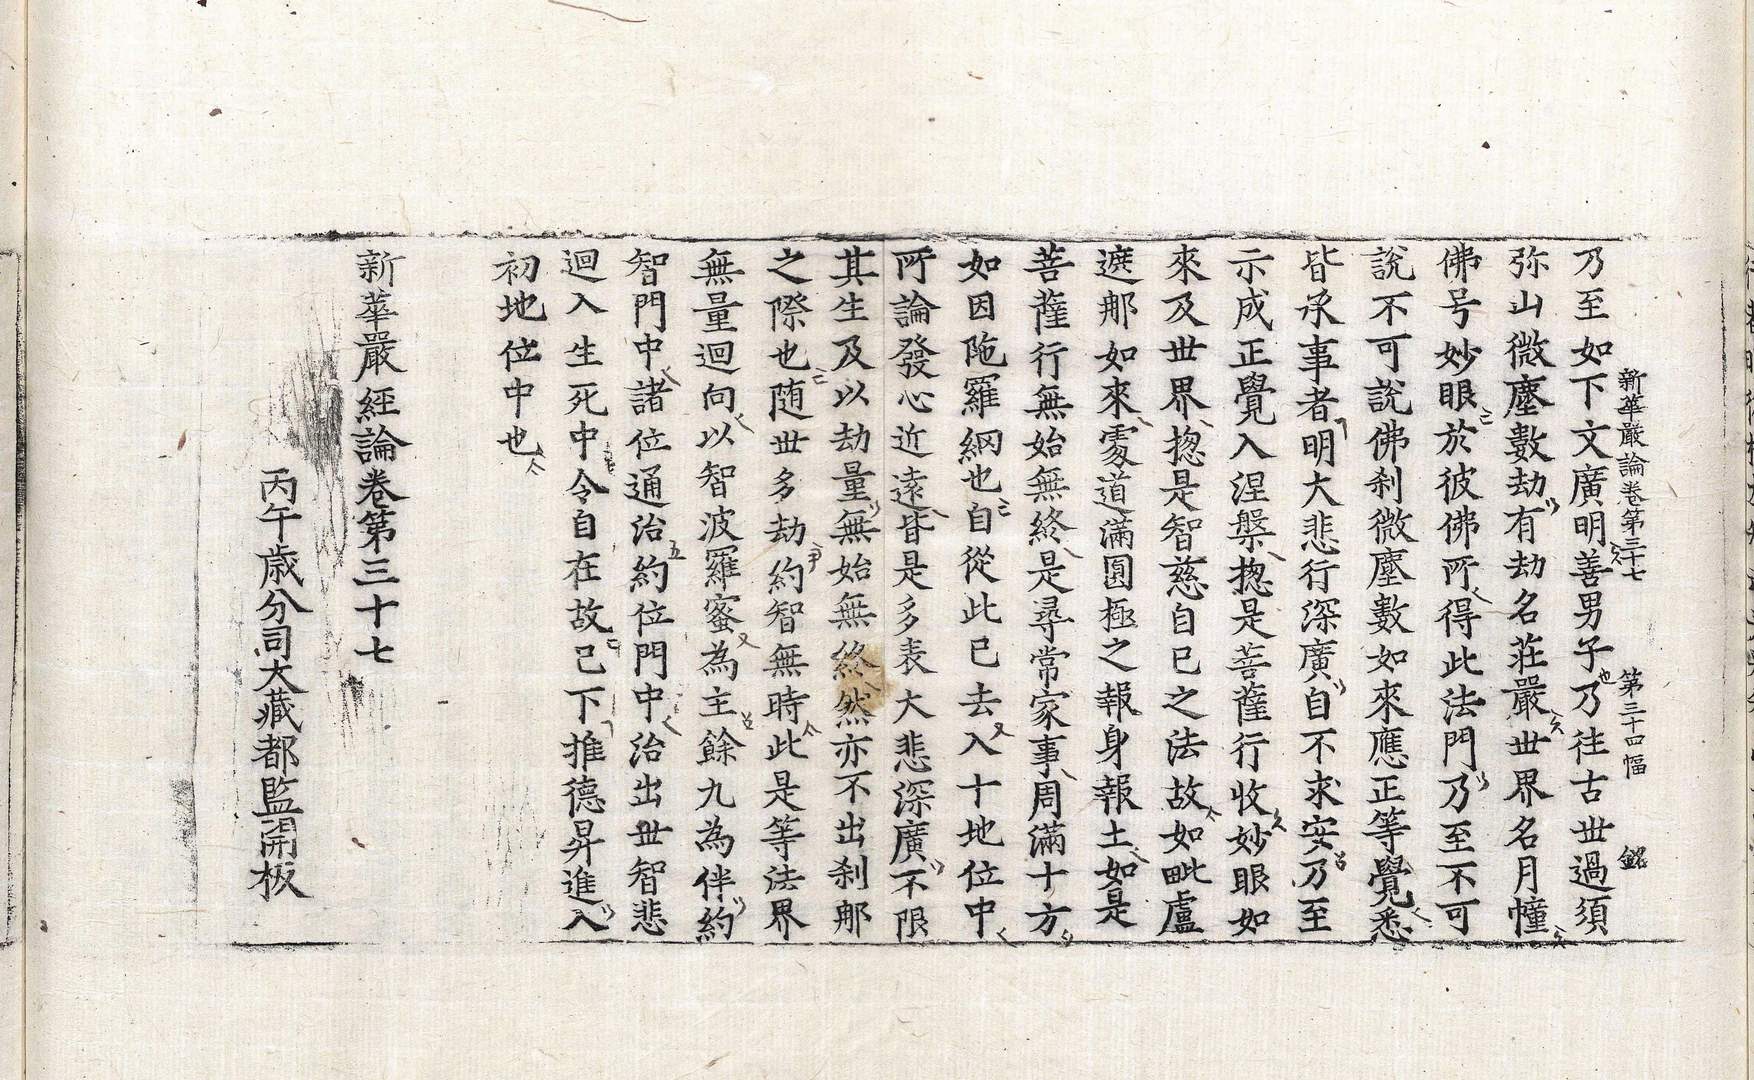 新華嚴論卷第三十七　第三十四幅　銘
乃至如下文廣明善男子乃往古世過須
弥山微塵數劫有劫名莊嚴世界名月幢
佛号妙眼於彼佛所得此法門乃至不可
說不可說佛刹微塵數如來應正等覺悉
皆承事者明大悲行深廣自不求安乃至
示成正覺入涅槃揔是菩薩行收妙眼如
來及世界揔是智慈自已之法故如毗盧
遮那如來處道滿圓極之報身報土如是
菩薩行無始無終是尋常家事周滿十方
如因陁羅網也自從此已去入十地位中
所論發心近遠皆是多表大悲深廣不限
其生及以劫量無始無終然亦不出刹那
之際也随世多劫約智無時此是等法界
無量迴向以智波羅蜜為主餘九為伴約
智門中諸位通治約位門中治出世智悲
迴入生死中令自在故已下推德昇進入
初地位中也
新華嚴經論卷第三十七
丙午歲分司大藏都監開板